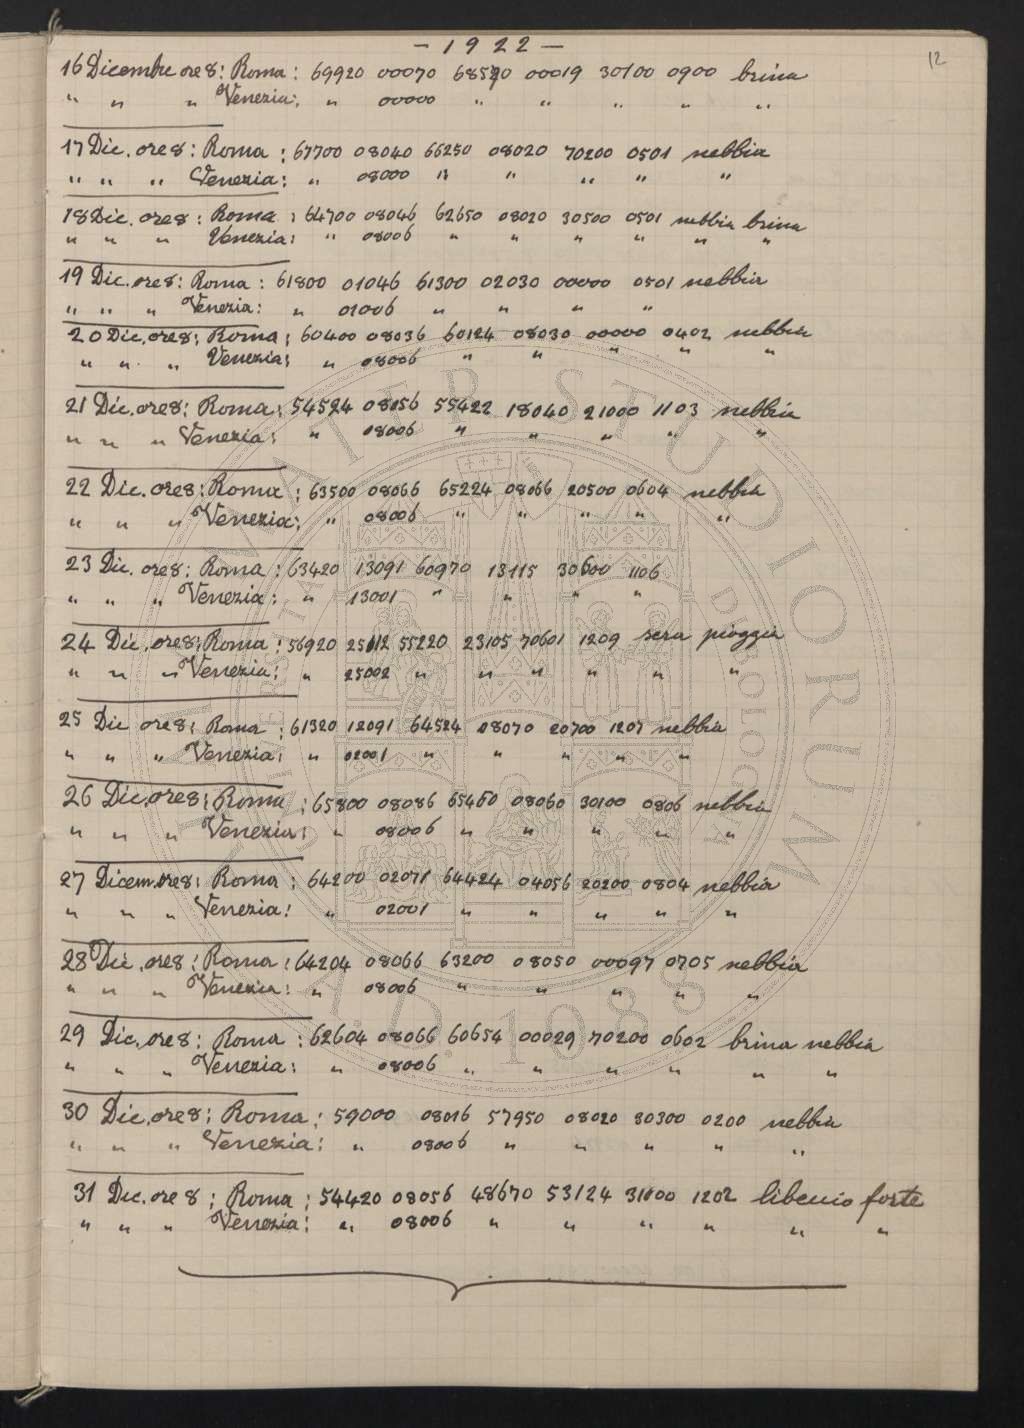 - 1922 -
12
16 Dicembre ore 8: Roma: 69920 00070 68570 00019 30100 0900 brina
" " " Venezia: " 00000 " " " " "
17 Dic. ore 8: Roma: 67700 08040 66250 08020 70200 0501 nebbia
" " " Venezia: " 08000 " " " " "
18 Dic. ore 8: Roma: 64700 08046 62650 08020 30500 0501 nebbia brina
" " " Venezia: " 08006 " " " " " "
19 Dic. ore 8: Roma: 61800 01046 61300 02030 00000 0501 nebbia
" " " Venezia: " 01006 " " " "
20 Dic. ore 8: Roma: 60400 08036 60124 08030 00000 0402 nebbia
" " " Venezia: " 08006 " " " " "
21 Dic. ore 8: Roma: 54524 08056 55422 18040 21000 1103 nebbia
" " " Venezia: " 08006 " " " " "
22 Dic. ore 8: Roma: 63500 08066 65224 08066 20500 0604 nebbia
" " " Venezia: " 08006 " " " " "
23 Dic. ore 8: Roma: 63420 13091 60970 13115 30600 1106
" " " Venezia: " 13001 " " " "
24 Dic. ore 8: Roma: 56920 25112 55220 23105 70601 1209 sera pioggia
" " " Venezia: " 25002 " " " " " "
25 Dic ore 8: Roma: 61320 12091 64524 08070 20700 1207 nebbia
" " " Venezia: " 02001 " " " " "
26 Dic. ore 8: Roma: 65800 08086 65460 08060 30100 0806 nebbia
" " " Venezia: " 08006 " " " " "
27 Dicem. ore 8: Roma: 64200 02071 64424 04056 20200 0804 nebbia
" " " Venezia: " 02001 " " " " "
28 Dic. ore 8: Roma: 64204 08066 63200 08050 00097 0705 nebbia
" " " Venezia: " 08006 " " " " "
29 Dic. ore 8: Roma: 62604 08066 60654 00029 70200 0602 brina nebbia
" " " Venezia: " 08006 " " " " " "
30 Dic. ore 8: Roma: 59000 08016 57950 08020 30300 0200 nebbia
" " " Venezia: " 08006 " " " " "
31 Dic. ore 8: Roma: 54420 08056 48670 53124 31000 1202 libeccio forte
" " " Venezia: " 08006 " " " " " "
ALMA MATER STUDIORUM
A.D. 1088